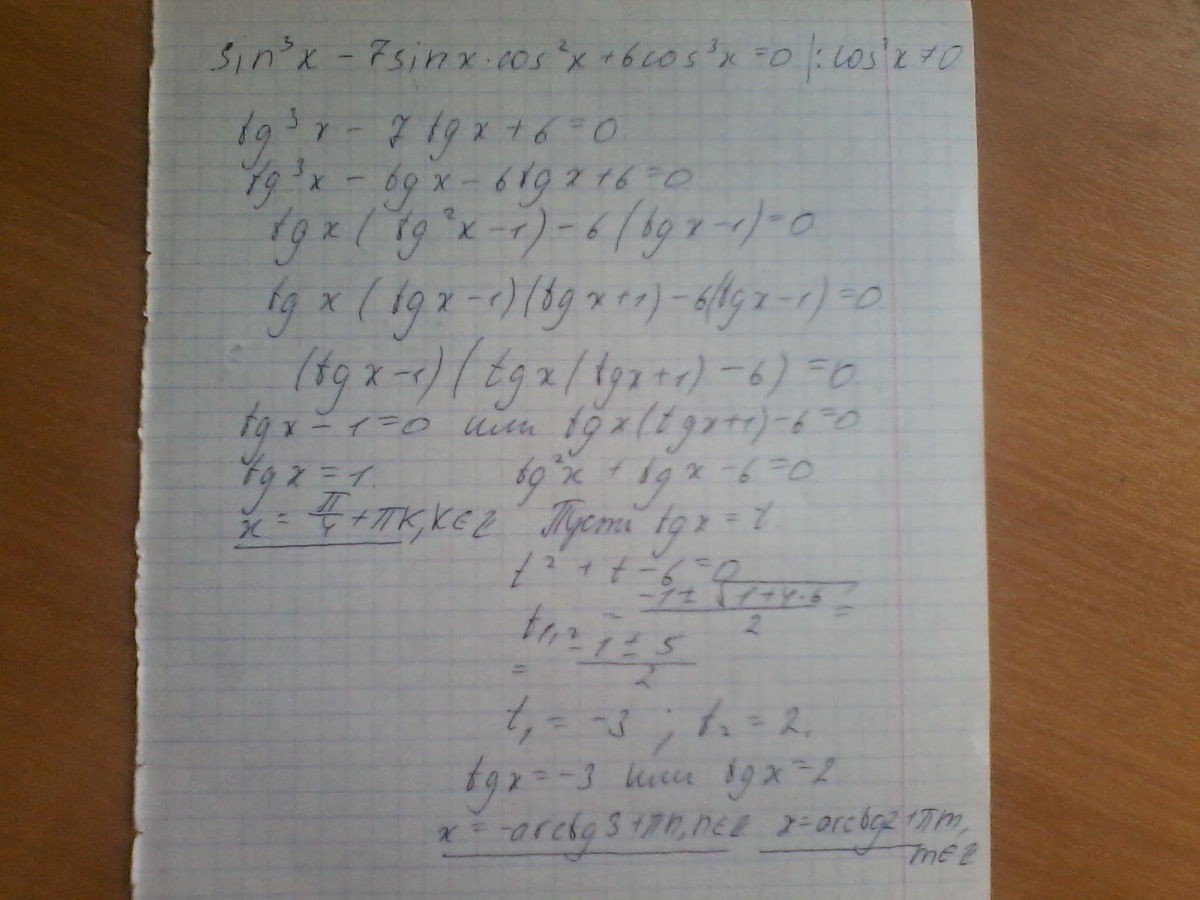 sin³x - 7sinx·cos²x + 6cos³x = 0 |: cos³x ≠ 0
tg³x - 7tgx + 6 = 0
tg³x - tgx - 6tgx + 6 = 0
tgx(tg²x - 1) - 6(tgx - 1) = 0
tgx(tgx - 1)(tgx + 1) - 6(tgx - 1) = 0
(tgx - 1)(tgx(tgx + 1) - 6) = 0
tgx - 1 = 0 или tgx(tgx + 1) - 6 = 0
tgx = 1. tg²x + tgx - 6 = 0
x = π/4 + πk, k∈Z Пусть tgx = t
t² + t - 6 = 0
t₁,₂ = (-1 ± √(1 + 4·6))/2 =
= (-1 ± 5)/2
t₁ = -3 ; t₂ = 2.
tgx = -3 или tgx = 2
x = -arctg3 + πn, n∈Z x = arctg2 + πm,
m∈Z